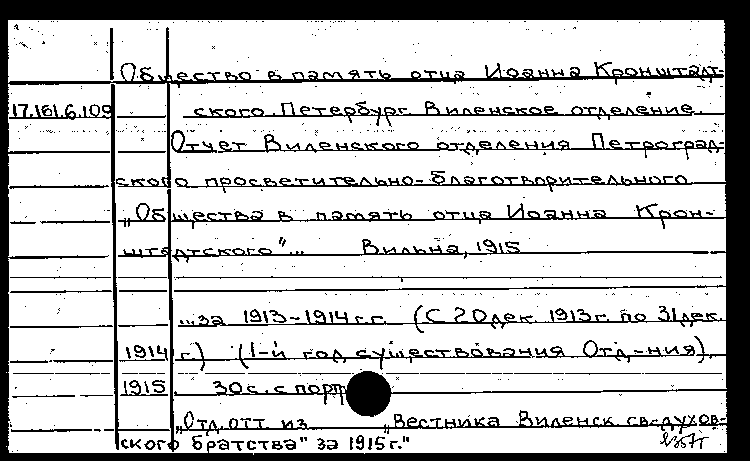 Общество в память отца Иоанна Кронштадт-
17.161.6.109 ского. Петербург. Виленское отделение.
Отчет Виленского отделения Петроград-
ского просветительно-благотворительного
„Общества в память отца Иоанна Крон-
штадтского"... Вильна, 1915
...за 1913-1914 г.г. (С 20 дек. 1913 г. по 31 дек.
1914 г.) (1-й год существования Отд-ния).
1915. 30 с. с портр
„Отд. отт. из „Вестника Виленск. св.-духов-
ского братства" за 1915 г."